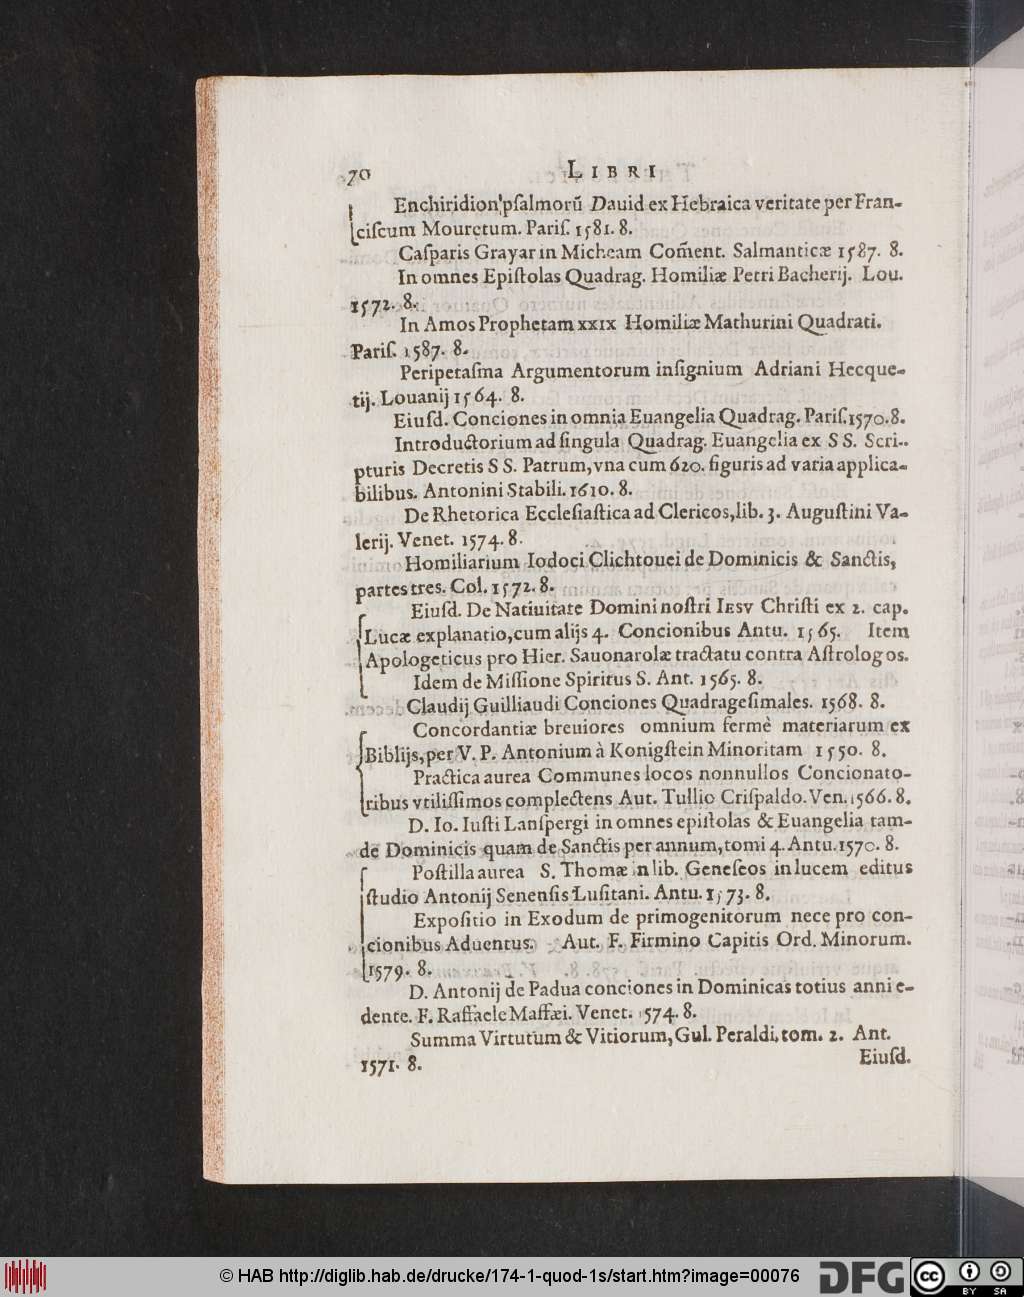 70 LIBRI
Enchiridion psalmorū Dauid ex Hebraica veritate per Fran-
ciſcum Mouretum. Pariſ. 1581. 8.
Caſparis Grayar in Micheam Com̄ent. Salmanticæ 1587. 8.
In omnes Epiſtolas Quadrag. Homiliæ Petri Bacherij. Lou.
1572. 8.
In Amos Prophetam XXIX Homiliæ Mathurini Quadrati.
Pariſ. 1587. 8.
Peripetaſma Argumentorum inſignium Adriani Hecque-
tij. Louanij 1564. 8.
Eiuſd. Conciones in omnia Euangelia Quadrag. Pariſ. 1570. 8.
Introductorium ad ſingula Quadrag. Euangelia ex S S. Scri-
pturis Decretis S S. Patrum, vna cum 620. figuris ad varia applica-
bilibus. Antonini Stabili. 1610. 8.
De Rhetorica Eccleſiaſtica ad Clericos, lib. 3. Auguſtini Va-
lerij. Venet. 1574. 8.
Homiliarium Iodoci Clichtouei de Dominicis & Sanctis,
partes tres. Col. 1572. 8.
Eiuſd. De Natiuitate Domini noſtri IESV Chriſti ex 2. cap.
Lucæ explanatio, cum alijs 4. Concionibus Antu. 1565. Item
Apologeticus pro Hier. Sauonarolæ tractatu contra Aſtrologos.
Idem de Miſſione Spiritus S. Ant. 1565. 8.
Claudij Guilliaudi Conciones Quadrageſimales. 1568. 8.
Concordantiæ breuiores omnium fermè materiarum ex
Biblijs, per V. P. Antonium à Konigſtein Minoritam 1550. 8.
Practica aurea Communes locos nonnullos Concionato-
ribus vtiliſſimos complectens Aut. Tullio Criſpaldo. Ven. 1566. 8.
D. Io. Iuſti Lanſpergi in omnes epiſtolas & Euangelia tam-
de Dominicis quam de Sanctis per annum, tomi 4. Antu. 1570. 8.
Poſtilla aurea S. Thomæ in lib. Geneſeos in lucem editus
ſtudio Antonij Senenſis Luſitani. Antu. 1573. 8.
Expoſitio in Exodum de primogenitorum nece pro con-
cionibus Aduentus. Aut. F. Firmino Capitis Ord. Minorum.
1579. 8.
D. Antonij de Padua conciones in Dominicas totius anni e-
dente. F. Raffaele Maffæi. Venet. 1574. 8.
Summa Virtutum & Vitiorum, Gul. Peraldi, tom. 2. Ant.
1571. 8. Eiuſd.
© HAB http://diglib.hab.de/drucke/174-1-quod-1s/start.htm?image=00076 DFG cc BY SA